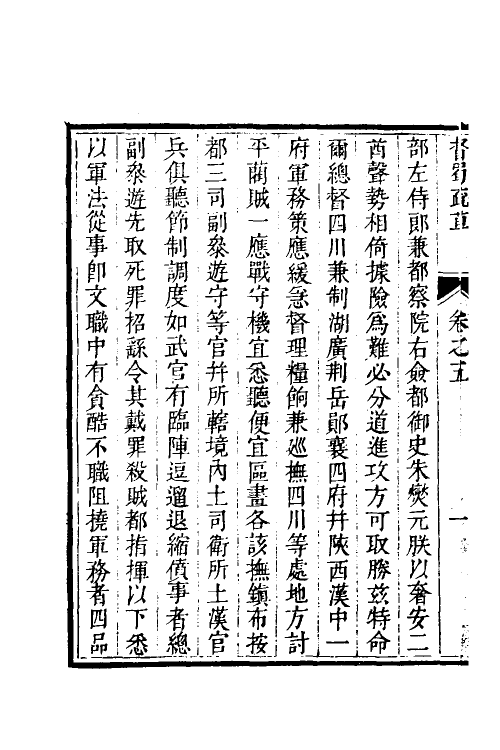 督蜀疏草 卷之五 一
部左侍郎兼都察院右僉都御史朱燮元朕以奢安二
酋聲勢相倚據險爲難必分道進攻方可取勝茲特命
爾總督四川兼制湖廣荆岳鄖襄四府幷陝西漢中一
府軍務策應緩急督理糧餉兼廵撫四川等處地方討
平藺賊一應戰守機宜悉聽便宜區畫各該撫鎭布按
都三司副叅遊守等官幷所轄境內土司衛所土漢官
兵俱聽節制調度如武官有臨陣逗遛退縮僨事者總
副叅遊先取死罪招繇令其戴罪殺賊都指揮以下悉
以軍法從事卽文職中有貪酷不職阻撓軍務者四品